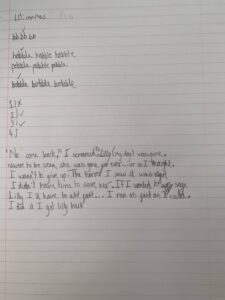 bb bb bb
hobble hobble hobble
pebble pebble pebble
bobble bobble bobble
1) x
2) ✓
3) ✓
4)
"No come back," I screamed "Lilly (my dog) was
nowere to be seen, she was gone for ever... or so I thought.
I wasn't to give up. The I saw it was
I didn't have time to save her. If I wanted to save
Lilly I'd have to act fast... I ran as fast as I could.
I did it I got lilly back